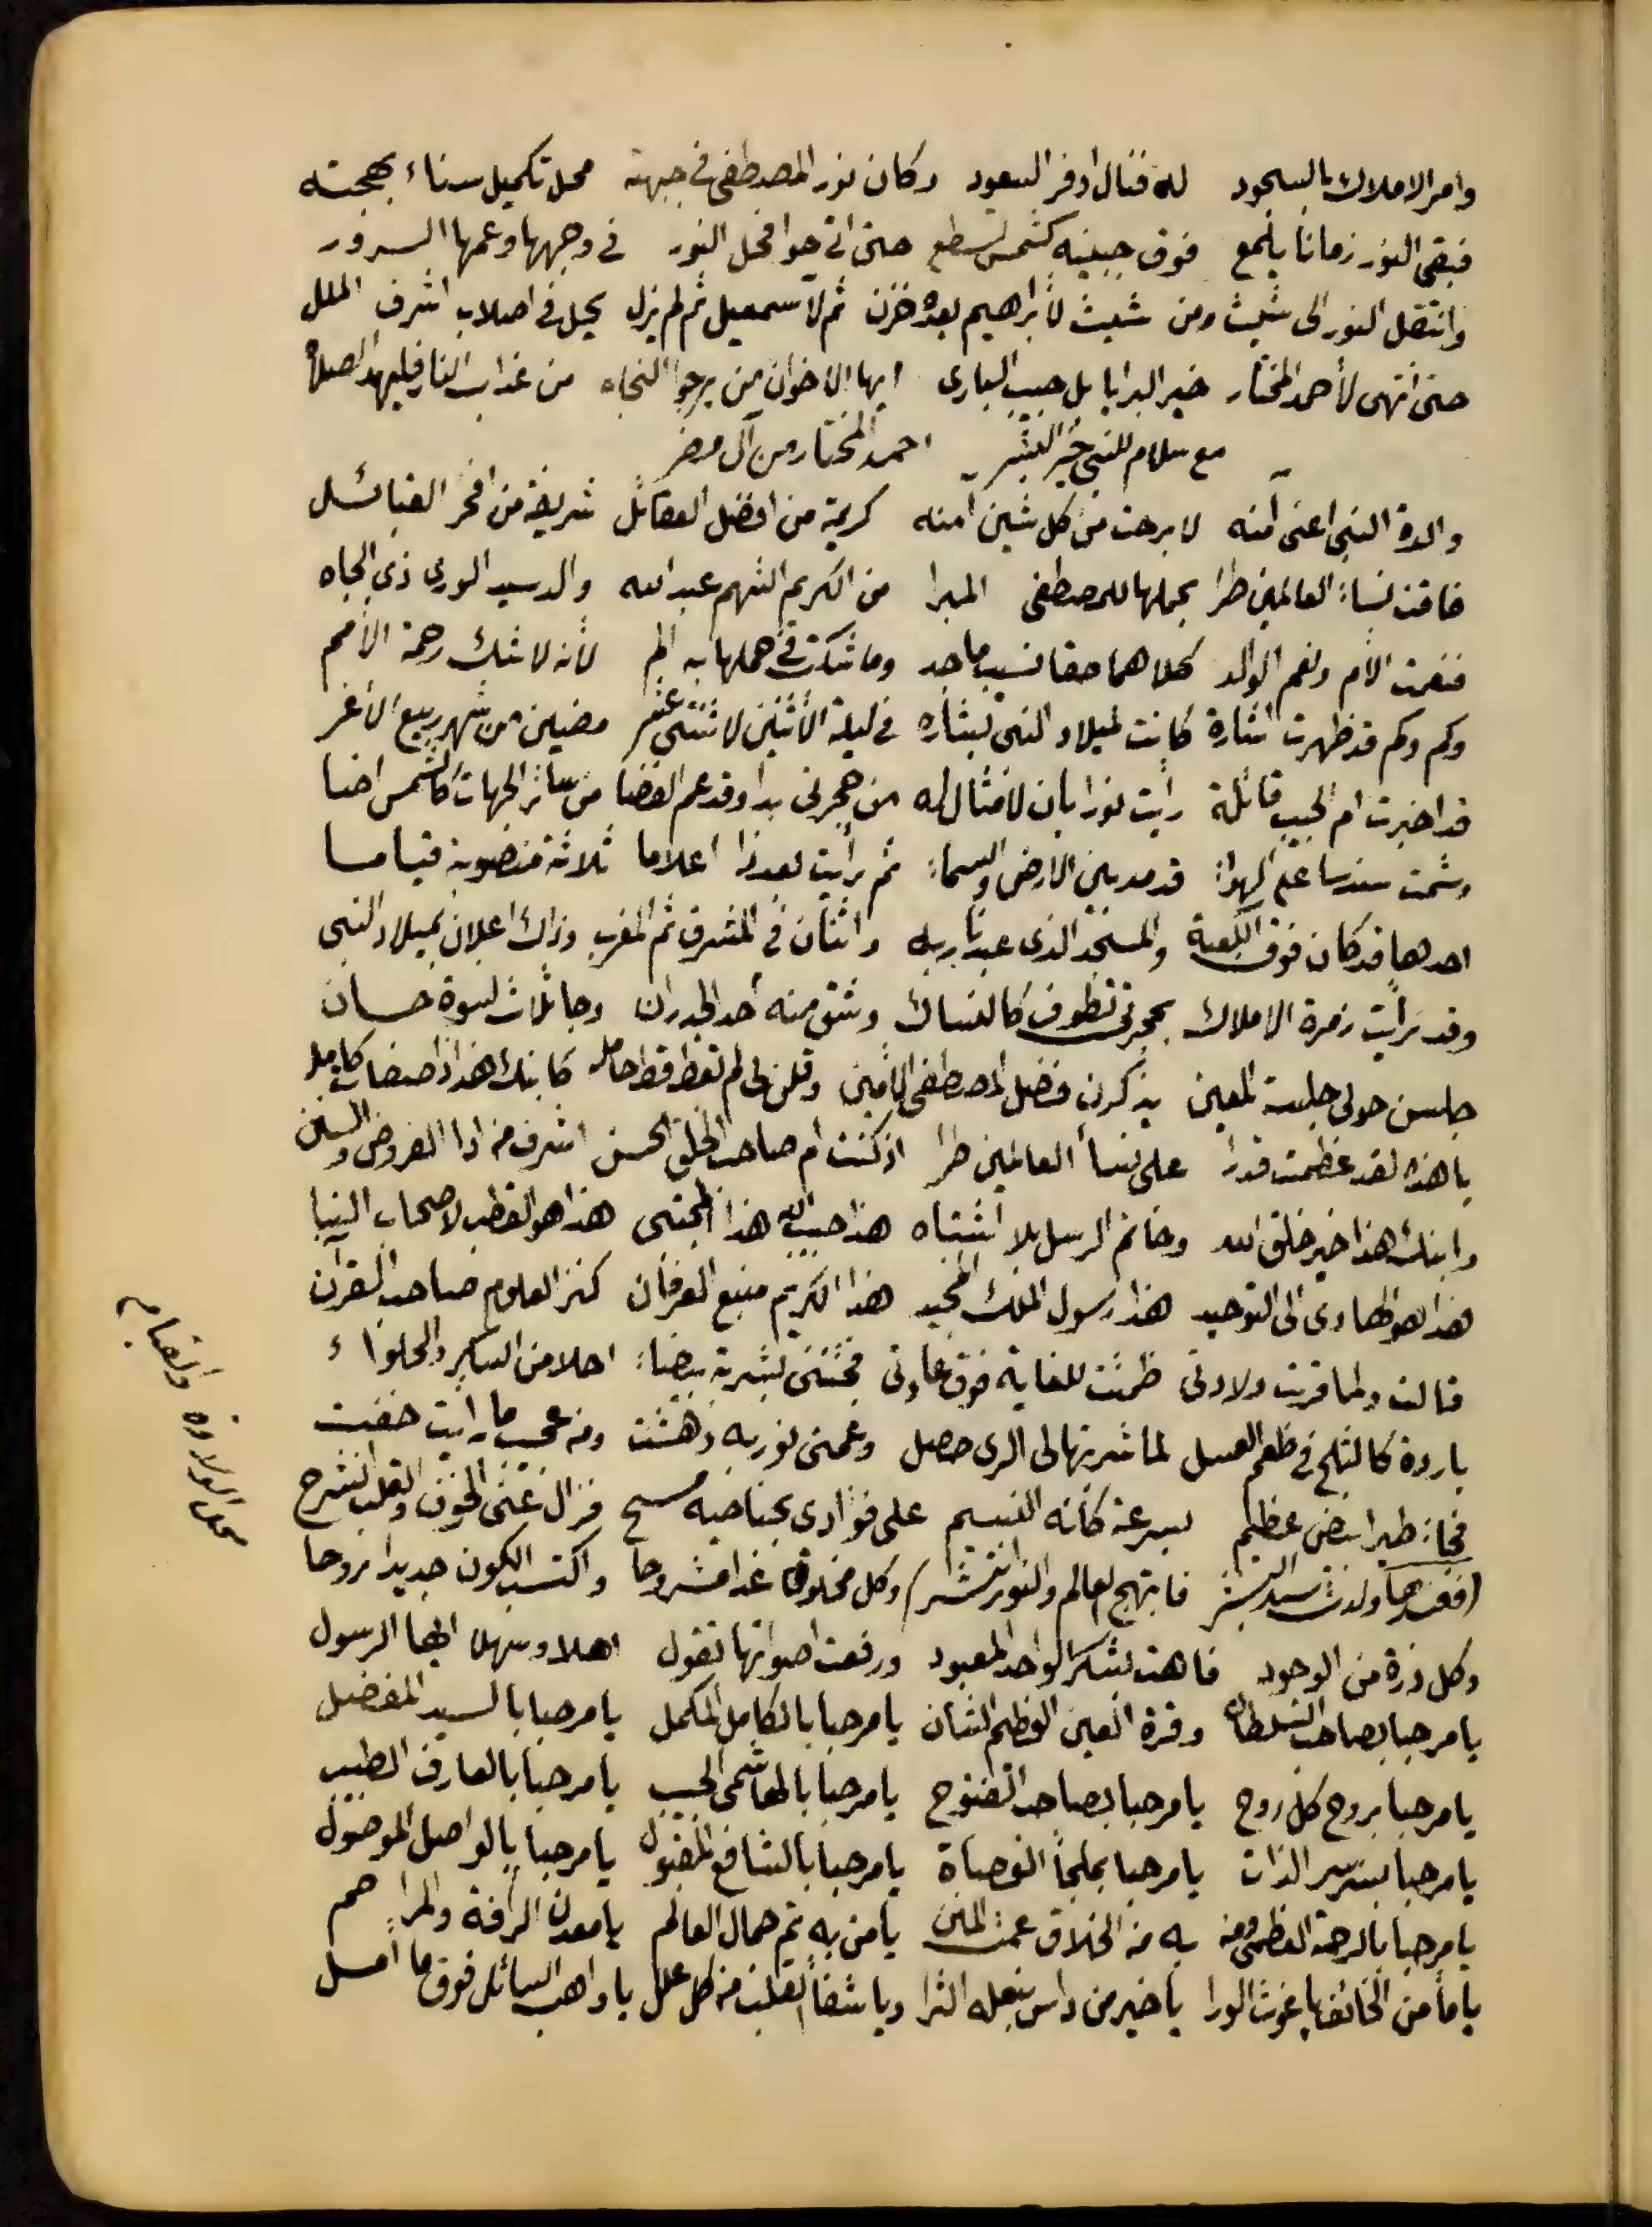 وامر الاملاك بالسجود له فنال اوفر السعود وكان نور المصطفى في جبهته محل تكميل سناء بهجته
فبقى النور زمانا يلمع فوق جبينه كشمس تسطع حتى اتى حوا فحل النور في وجهها وعمها السرور
وانتقل النور الى شيث ومن شيث لابراهيم بعده خزن ثم لاسمعيل ثم لم يزل يحيل في اصلاب اشرف الملل
حتى انتهى لأحمد المختار خير البرايا بل حبيب الباري ايها الاخوان من يرجوا النجاه من عذاب النار فليهد الصلاه
مع سلام للنبي خير البشر احمد المختار من آل مضر
والدة النبي اعنى آمنه لا برحت من كل شين آمنه كريمة من افضل العقائل شريفة من افخر القبائل
فاقت نساء العالمين طرا بحملها للمصطفى المبرا من الكريم الشهم عبد الله والد سيد الورى ذي الجاه
فنعمت الأم ونعم الوالد كلاهما حقا نسيب ماجد وما شكت في حملها به الم لأنه لا شك رحمة الأمم
وكم وكم قد ظهرت اشارة كانت لميلاد النبي بشاره في ليلة الأثنين لاثنتى عشر مضين من شهر ربيع الأغر
قد اخبرت ام الحبيب قائلة رأيت نورا بان لا مثال له من حجرتى بدا وقد عم الفضا من سائر الجهات كالشمس اضا
وشمت سندسا على الهواء قد مد بين الارض والسماء ثم رأيت بعد ذا اعلاما ثلاثة منصوبة قياما
احدها قد كان فوق الكعبة والمسجد الذى عبدنا ربه واثنان في المشرق ثم المغرب وذاك اعلان بميلاد النبي
وقد رأيت زمرة الاملاك بحجرتى تطوف كالنساك وشق منه أحد الجدران وجا ثلاث نسوة حسان
جلسن حولى جلسة المعين يذكرن فضل المصطفى الأمين وقلن لى لم تعط قط حامله كابنك هذا ذا صفات كامله
يا هذه لقد عظمت قدرا على نسأ العالمين طرا اذ كنت ام صاحب الخلق الحسن اشرف من ادا الفروض والسنن
وابنك هذا خير خلق الله وخاتم الرسل بلا اشتباه هذا حبيب الله هذا المجتبى هذا هو القطب لاصحاب النبا
هذا هو الهادى الى التوحيد هذا رسول الملك المجيد هذا الكريم منبع العرفان كنز العلوم صاحب القرآن
قالت ولما قربت ولادتى ظمئت للغاية فوق عادتى فجئننى بشربة بيضاء احلا من السكر والحلواء
باردة كالثلج في طعم العسل لما شربتها لى الرى حصل وعمنى نور به دهشت ومن عجب ما رأيت خفت
فجاء طير ابيض عظيم بسرعة كأنه النسيم على فؤادى بجناحيه مسح فزال عنى الخوف والقلب انشرح
(فعندها ولدت سيد البشر فابتهج العالم والنور انتشر) وكل مخلوق غدا مشروحا واكتسب الكون جديدا روحا
وكل ذرة من الوجود فاهت بشكر الواحد المعبود ورفعت اصواتها تقول اهلا وسهلا ايها الرسول
يا مرحبا بصاحب السلطان وقرة العين العظيم الشان يا مرحبا بالكامل المكمل يا مرحبا بالسيد المفضل
يا مرحبا بروح كل روح يا مرحبا بصاحب الفتوح يا مرحبا بالهاشمى الحبيب يا مرحبا بالعارف الطبيب
يا مرحبا بسر سر الذات يا مرحبا بملجأ العصاة يا مرحبا بالشافع المقبول يا مرحبا بالواصل الموصول
يا مرحبا بالرحمة العظمى ومن به من الخلاق عمت المنن يا من به تم جمال العالم يا معدن الرأفة والمراحم
يا مأمن الخائف يا غوث الورا يا خير من داس بنعله الثرا ويا شفأ القلب من كل علل يا واهب السائل فوق ما أمل
محل الولاده والقيام